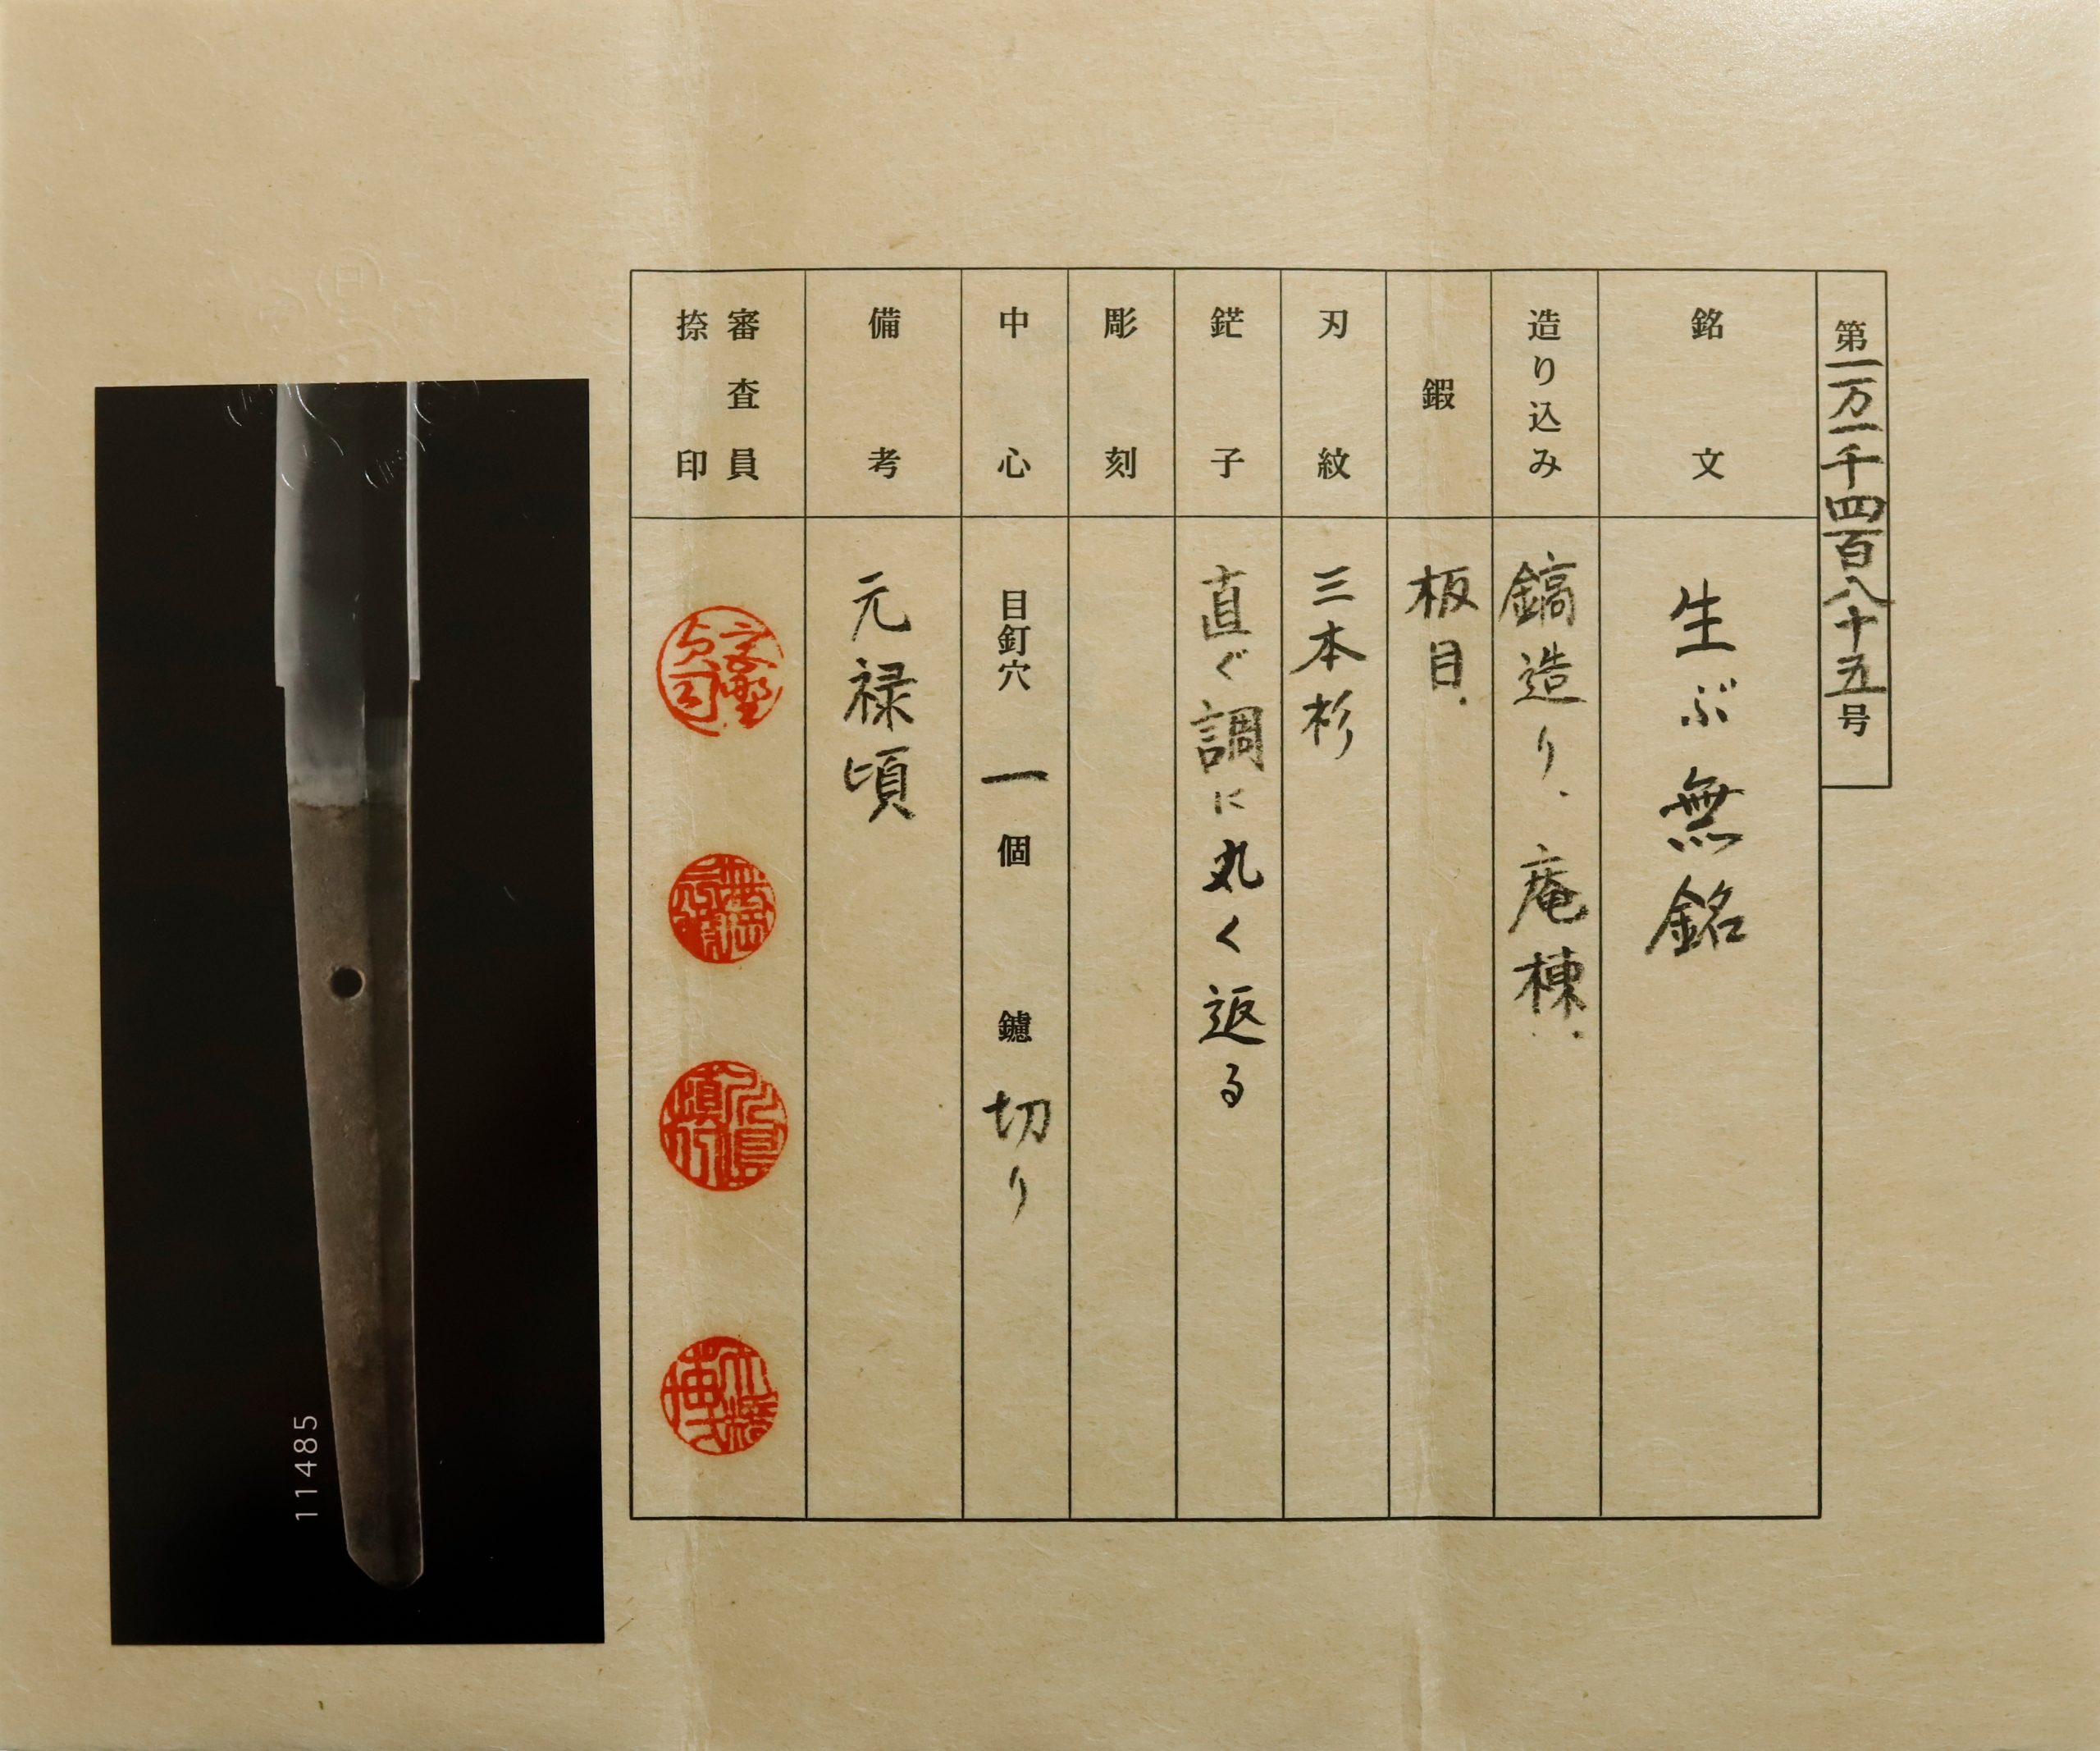 第一万一千四百八十五号
銘文
生ぶ無銘
造り込み
鎬造り、庵棟、
鍜
板目、
刃紋
三本杉
鋩子
直ぐ調に丸く返る
彫刻
中心
目釘穴 一 個 鑢 切り
備考
元禄頃
審査員
捺印
11485